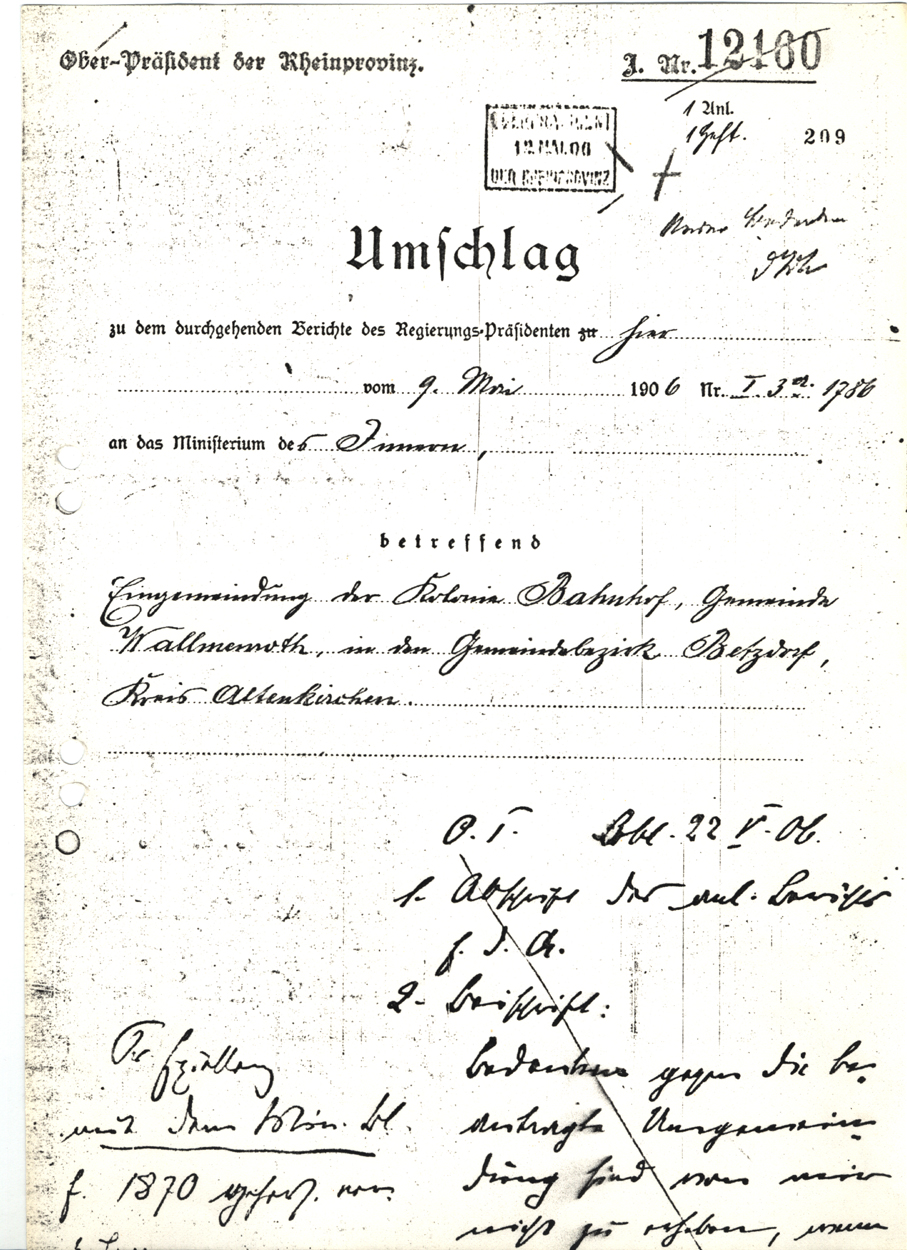 Ober-Präsident der Rheinprovinz.
J. Nr. 12160
1 Anl.
1 Heft.
209
OBERPRÄSIDENT
12. MAI. 06
DER RHEINPROVINZ
Umschlag
Keine Bedenken
zu dem durchgehenden Berichte des Regierungs-Präsidenten zu hier
vom 9. Mai 1906 Nr. I. 3 1786
an das Ministerium des Innern,
betreffend
Eingemeindung der Kolonie Bahnhof, Gemeinde
Wallmenroth, in den Gemeindebezirk Betzdorf,
Kreis Altenkirchen.
O. P. Cbl. 22 V. 06.
1. Abschrift des anl. Berichts
z. d. A.
2. Beischrift:
Bedenken gegen die be-
antragte Umgemein-
dung sind von mir
nicht zu erheben, wenn
mit dem Min. Bl.
f. 1870